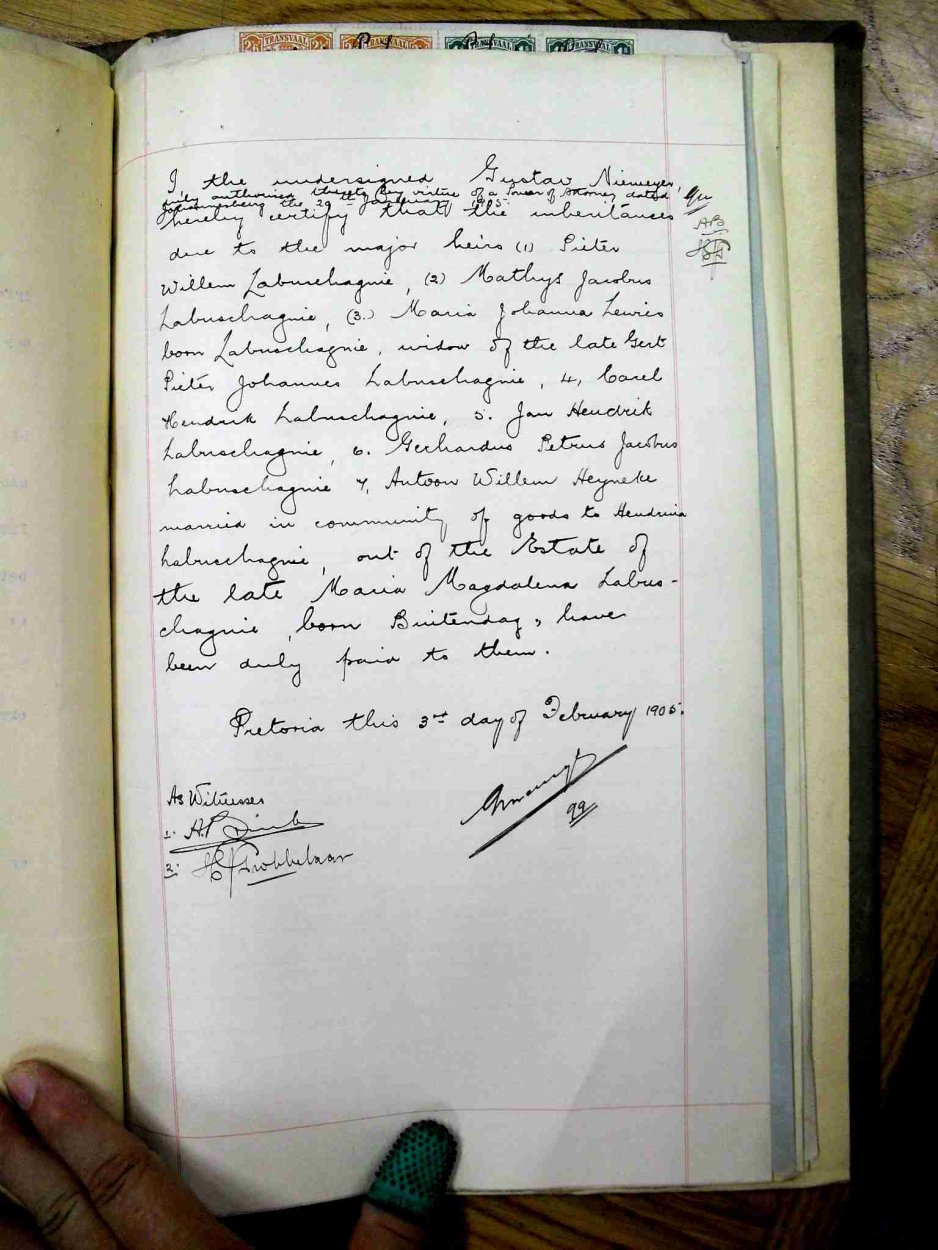 TRANSVAAL TRANSVAAL TRANSVAAL TRANSVAAL
I, the undersigned Gustav Niemeyer,
duly authorised thereto by virtue of a Power of Attorney dated
Johannesburg the 29th January 1905.
hereby certify that the inheritances
due to the major heirs (1) Pieter
Willem Labuschagnie, (2) Mathys Jacobus
Labuschagnie, (3.) Maria Johanna Lewies
born Labuschagnie, widow of the late Gert
Pieter Johannes Labuschagnie, 4, Carel
Hendrik Labuschagnie, 5. Jan Hendrik
Labuschagnie, 6. Gerhardus Petrus Jacobus
Labuschagnie 7, Antoon Willem Heyneke
married in community of goods to Hendrina
Labuschagnie, out of the Estate of
the late Maria Magdalena Labus-
chagnie, born Buitendag, have
been duly paid to them.
Pretoria this 3rd day of February 1905.
As Witnesses
1. A.P.
2. Grobbelaar
qq